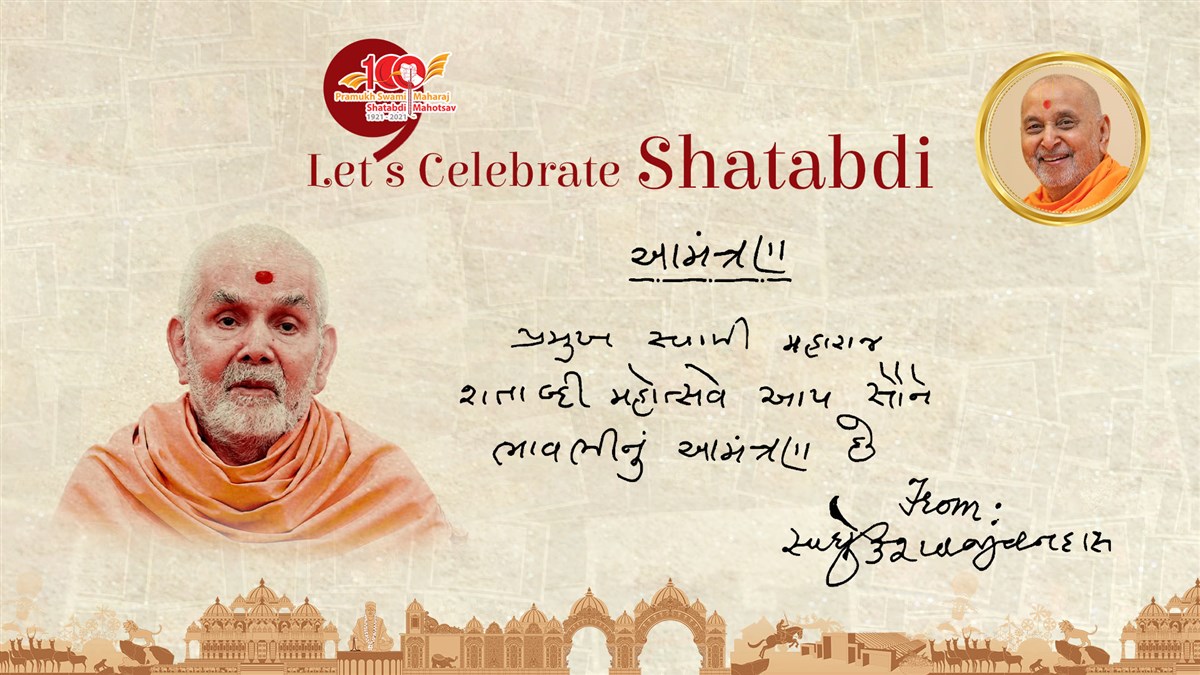 100
Pramukh Swami Maharaj
Shatabdi Mahotsav
1921 - 2021
Let's Celebrate Shatabdi
આમંત્રણ
પ્રમુખ સ્વામી મહારાજ
શતાબ્દી મહોત્સવે આપ સૌને
ભાવભીનું આમંત્રણ છે
From:
સાધુ કેશવજીવનદાસ